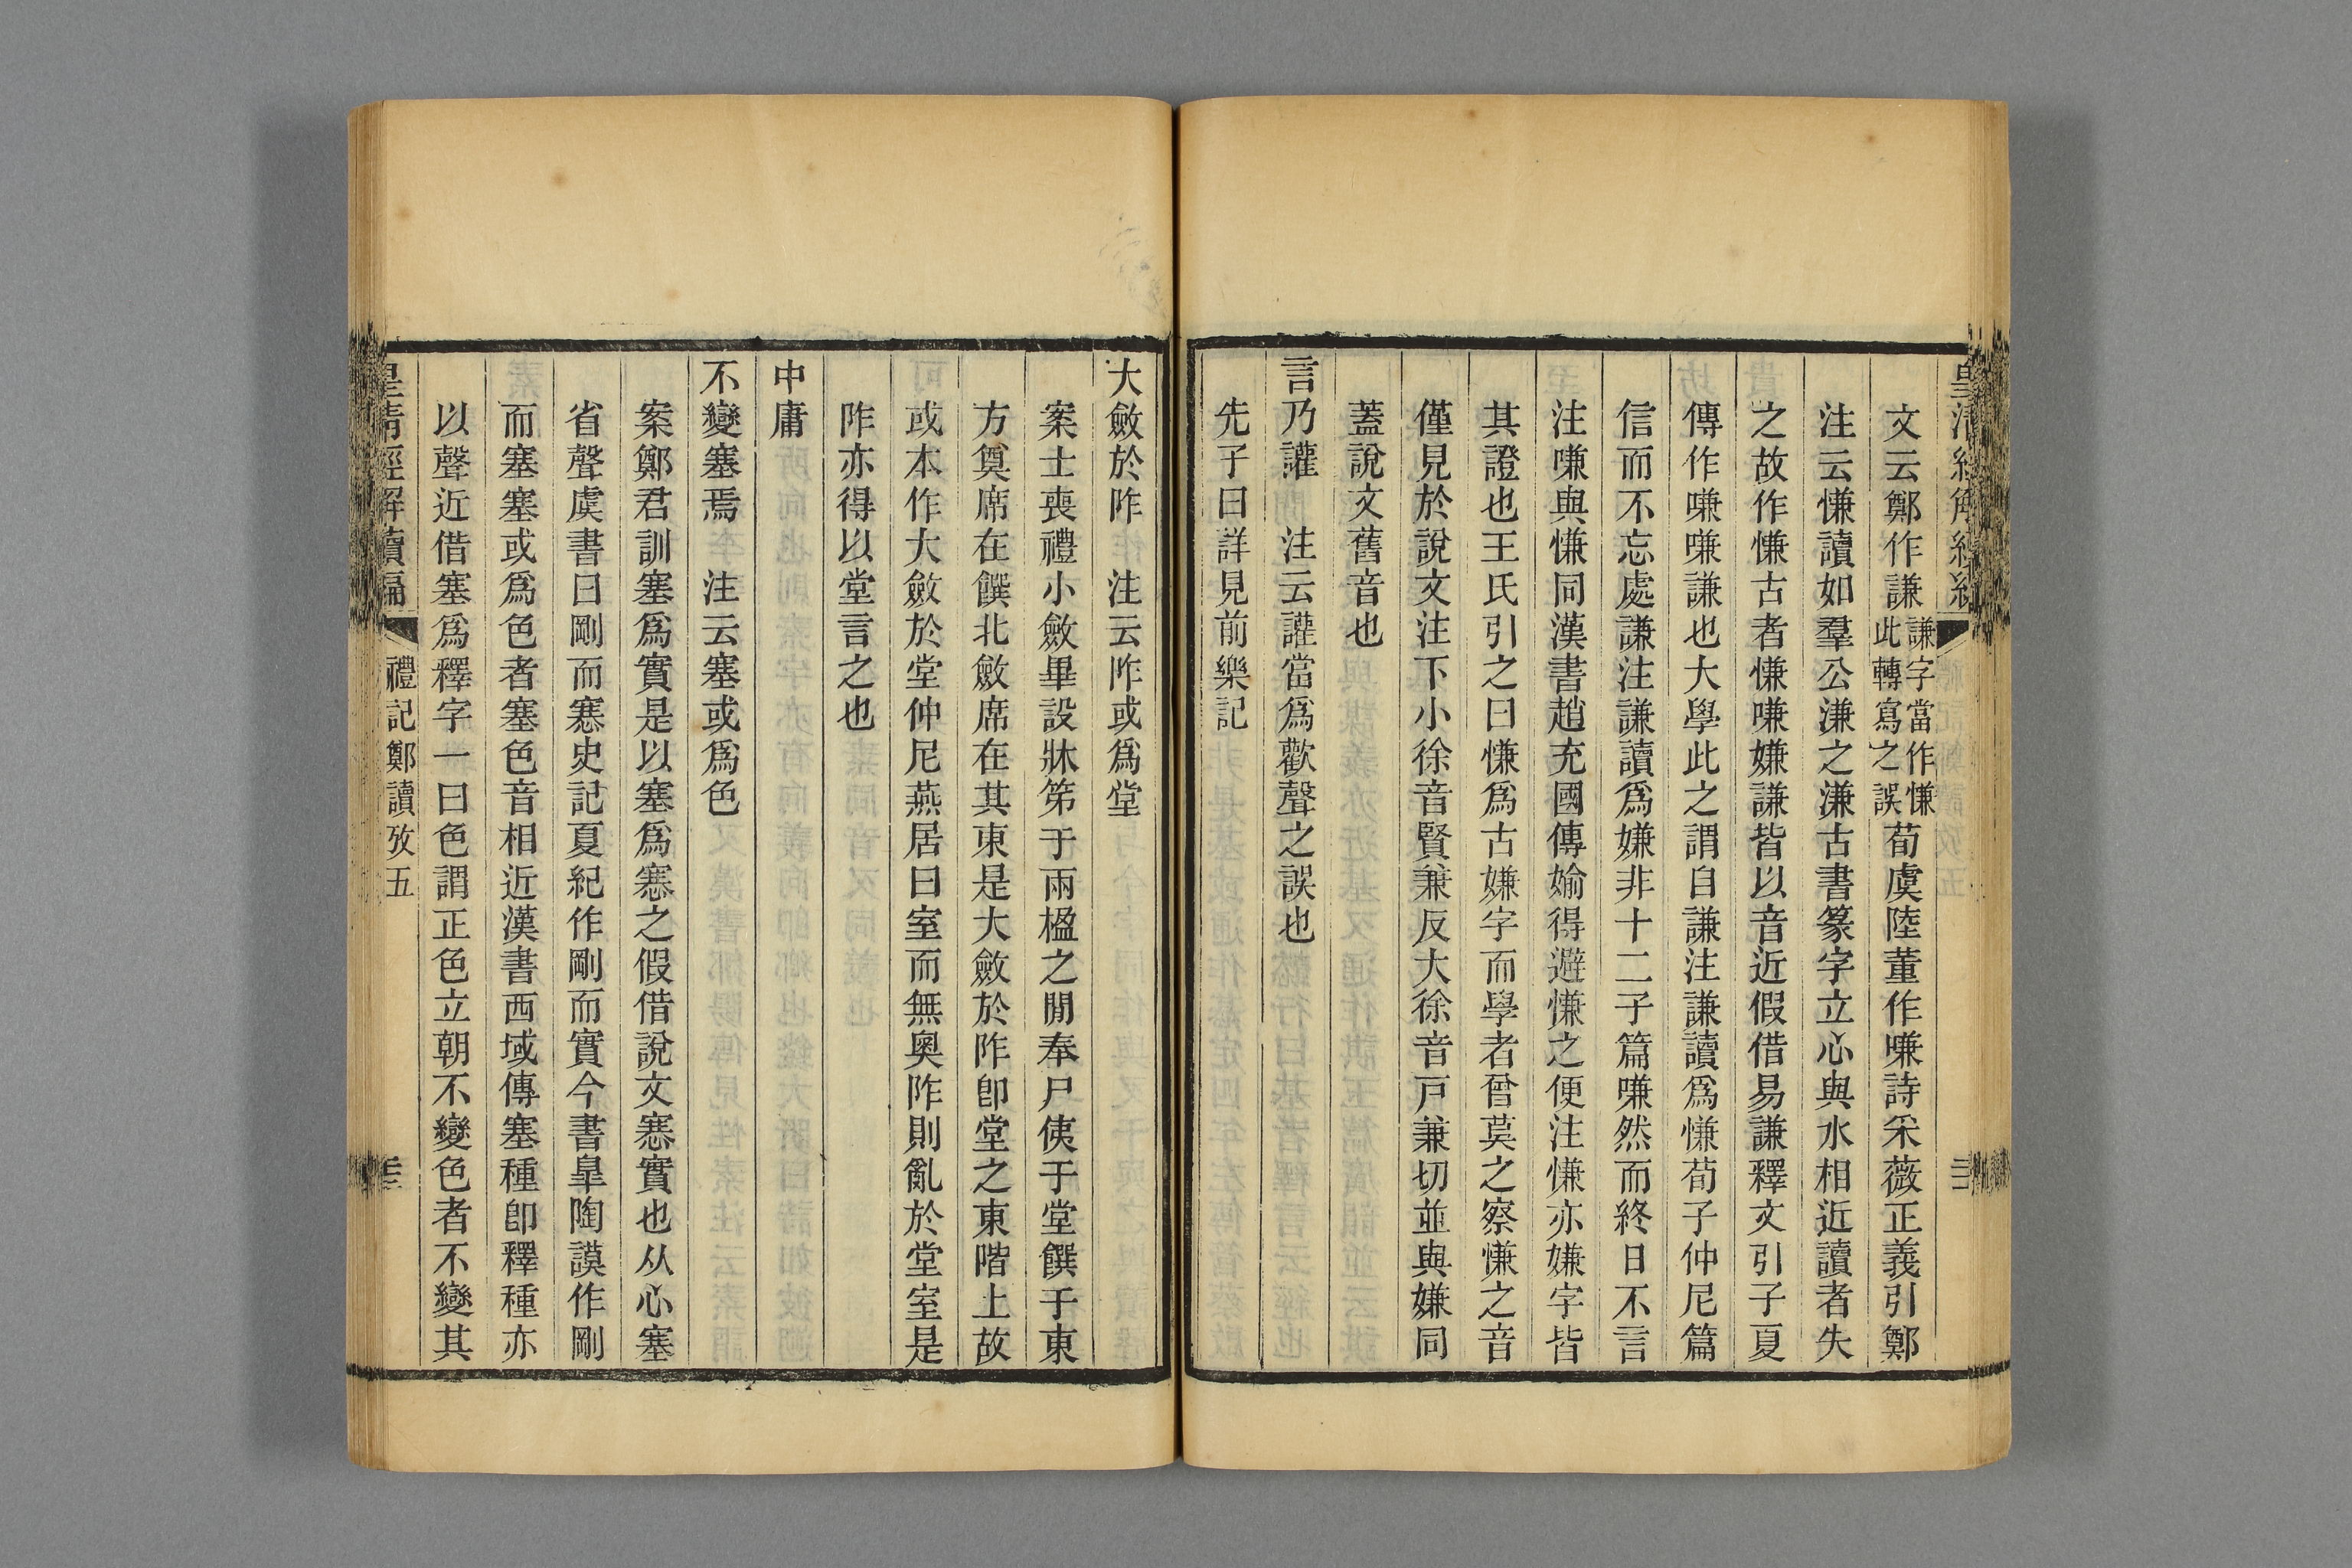 文云鄭作謙謙字當作慊此轉寫之誤荀虞陸董作嗛詩采薇正義引鄭
注云慊讀如羣公溓之溓古書篆字立心與水相近讀者失
之故作慊古者慊嗛嫌謙皆以音近假借易謙釋文引子夏
傳作嗛嗛謙也大學此之謂自謙注謙讀爲慊荀子仲尼篇
信而不忘處謙注謙讀爲嫌非十二子篇嗛然而終日不言
注嗛與慊同漢書趙充國傳媮得避慊之便注慊亦嫌字皆
其證也王氏引之曰慊爲古嫌字而學者曾莫之察慊之音
僅見於說文注下小徐音賢兼反大徐音戸兼切並與嫌同
蓋說文舊音也
言乃讙　注云讙當爲歡聲之誤也
先子曰詳見前樂記
大斂於阼　注云阼或爲堂
案士喪禮小斂畢設牀笫于兩楹之閒奉尸侇于堂饌于東
方奠席在饌北斂席在其東是大斂於阼卽堂之東階上故
或本作大斂於堂仲尼燕居曰室而無奧阼則亂於堂室是
阼亦得以堂言之也
中庸
不變塞焉　注云塞或爲色
案鄭君訓塞爲實是以塞爲寋之假借說文寋實也从心塞
省聲虞書曰剛而寋史記夏紀作剛而實今書臯陶謨作剛
而塞塞或爲色者塞色音相近漢書西域傳塞種卽釋種亦
以聲近借塞爲釋字一曰色謂正色立朝不變色者不變其
皇清經解續編　禮記鄭讀攷五